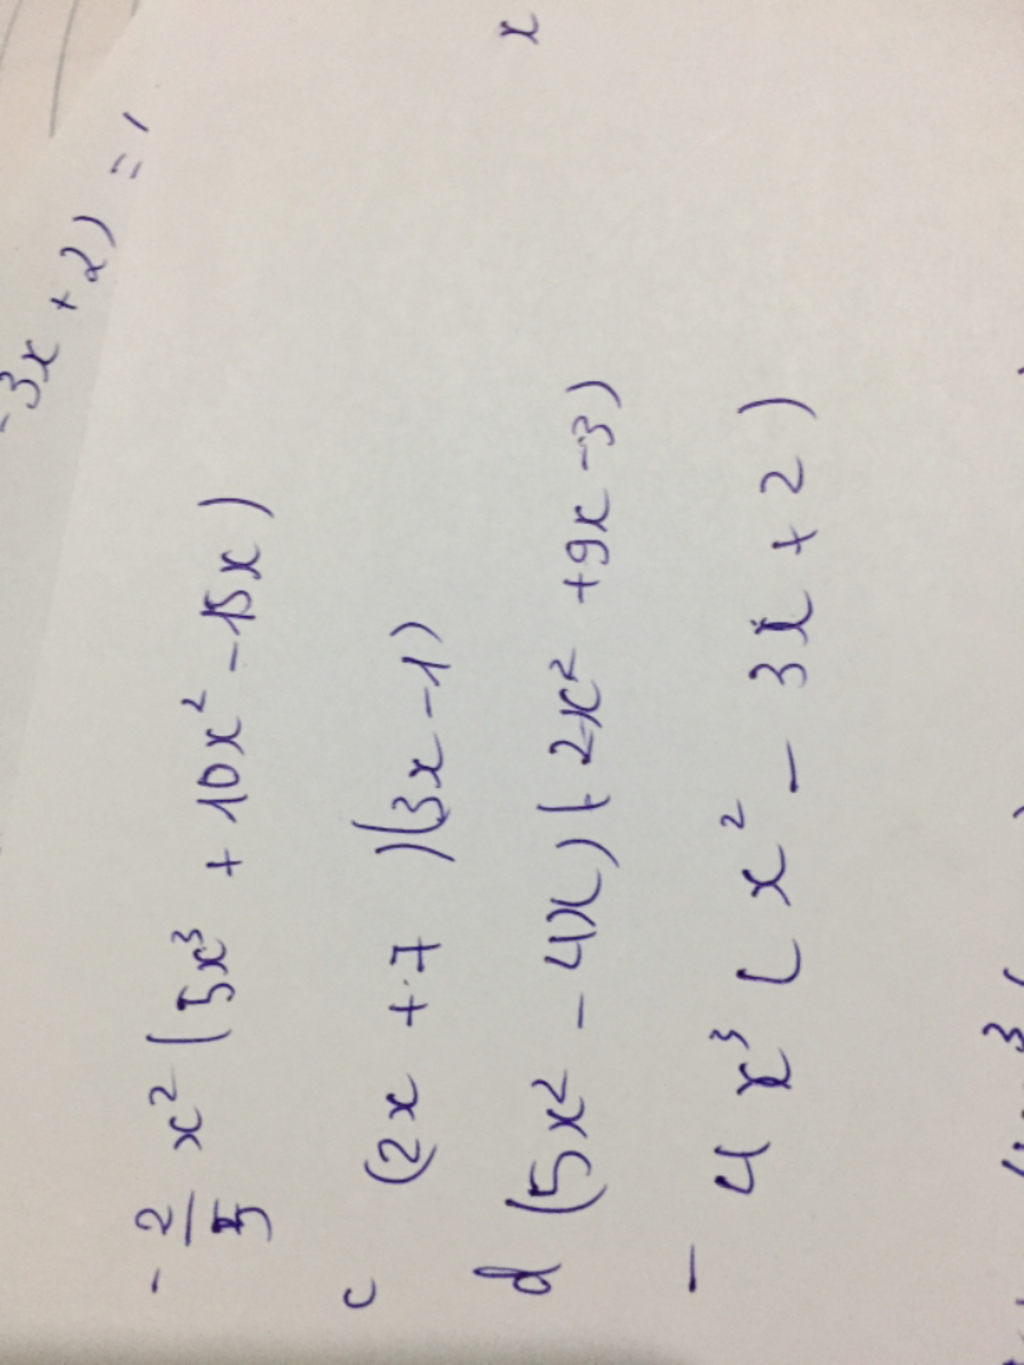 -3x + 2) =
x
- 2/5 x² (5x³ + 10x² - 15x)
c (2x + 7)(3x - 1)
d (5x² - 4x)(- 2x² + 9x - 3)
- 4x³ (x² - 3x + 2)